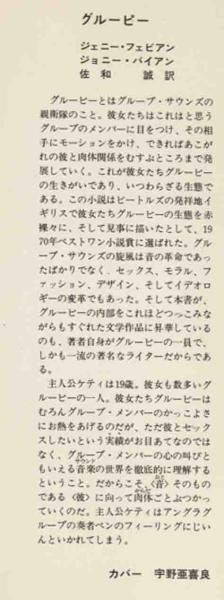 グルーピー
ジェニー・フェビアン
ジョニー・バイアン
佐和 誠 訳
グルーピーとはグループ・サウンズの
親衛隊のこと。彼女たちはこれはと思う
グループのメンバーに目をつけ、その相
手にモーションをかけ、できればあこが
れの彼と肉体関係をむすぶところまで発
展していく。これが彼女たちグルーピー
の生きがいであり、いつわらざる生態で
ある。この小説はビートルズの発祥地イ
ギリスで彼女たちグルーピーの生態を赤
裸々に、そして見事に描いたとして、19
70年ベストワン小説賞に選ばれた。グルー
プ・サウンズの旋風は音の革命であっ
たばかりでなく、セックス、モラル、フ
ァッション、デザイン、そしてイデオロ
ギーの変革でもあった。そして本書が、
グルーピーの内部をこれほどつっこみな
がらもすぐれた文学作品に昇華している
のも、著者自身がグルーピーの一員で、
しかも一流の著名なライターだからであ
る。
主人公ケティは19歳。彼女も数多いグ
ルーピーの一人。彼女たちグルーピーは
むろんグループ・メンバーのかっこよさ
にお熱をあげるのだが、ただ彼とセック
スしたいという実績がお目あてなのでは
なく、グループ・メンバーの心の叫びと
もいえる音楽の世界を徹底的に理解する
ということ。だからこそ〈音〉そのもの
である〈彼〉に向って肉体ごとぶつかっ
ていくのだ。主人公ケティはアングラグ
ループの奏者ベンのフィーリングにじい
んといかれてしまう。
カバー 宇野亜喜良